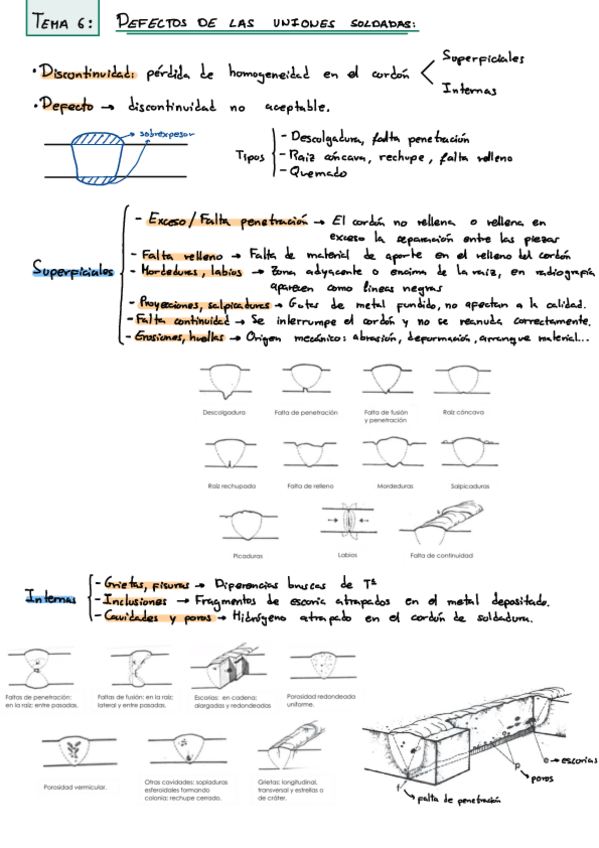 TEMA 6: DEFECTOS DE LAS UNIONES SOLDADAS:
• Discontinuidad: pérdida de homogeneidad en el cordón < Superficiales
Internas
• Defecto → discontinuidad no aceptable.
sobreespesor
Tipos
- Descolgadura, falta penetración
- Raiz cóncava, rechupe, falta relleno
- Quemado
Superficiales
- Exceso / Falta penetración → El cordón no rellena o rellena en
exceso la separación entre las piezas
- Falta relleno → Falta de material de aporte en el relleno del cordón
- Mordeduras, labios → Zona adyacente o encima de la raiz, en radiografía
aparecen como lineas negras
- Proyecciones, salpicaduras → Gotas de metal fundido, no afectan a la calidad.
- Falta continuidad → Se interrumpe el cordón y no se reanuda correctamente.
- Erosiones, huellas → Origen mecánico: abrasión, deformación, arranque material...
Descolgadura
Falta de penetración
Falta de fusión
y penetración
Raíz cóncava
Raíz rechupada
Falta de relleno
Mordeduras
Salpicaduras
Picaduras
Labios
Falta de continuidad
Internas
- Grietas, fisuras → Diferencias bruscas de Tª
- Inclusiones → Fragmentos de escoria atrapados en el metal depositado.
- Cavidades y poros → Hidrógeno atrapado en el cordón de soldadura.
Faltas de penetración:
en la raíz; entre pasadas.
Faltas de fusión: en la raíz;
lateral y entre pasadas.
Escorias: en cadena;
alargadas y redondeadas
Porosidad redondeada
uniforme.
Porosidad vermicular.
Otras cavidades: sopladuras
esferoidales formando
colonia; rechupe cerrado.
Grietas: longitudinal,
transversal y estrellas o
de cráter.
e → escorias
p
poros
f
falta de penetración